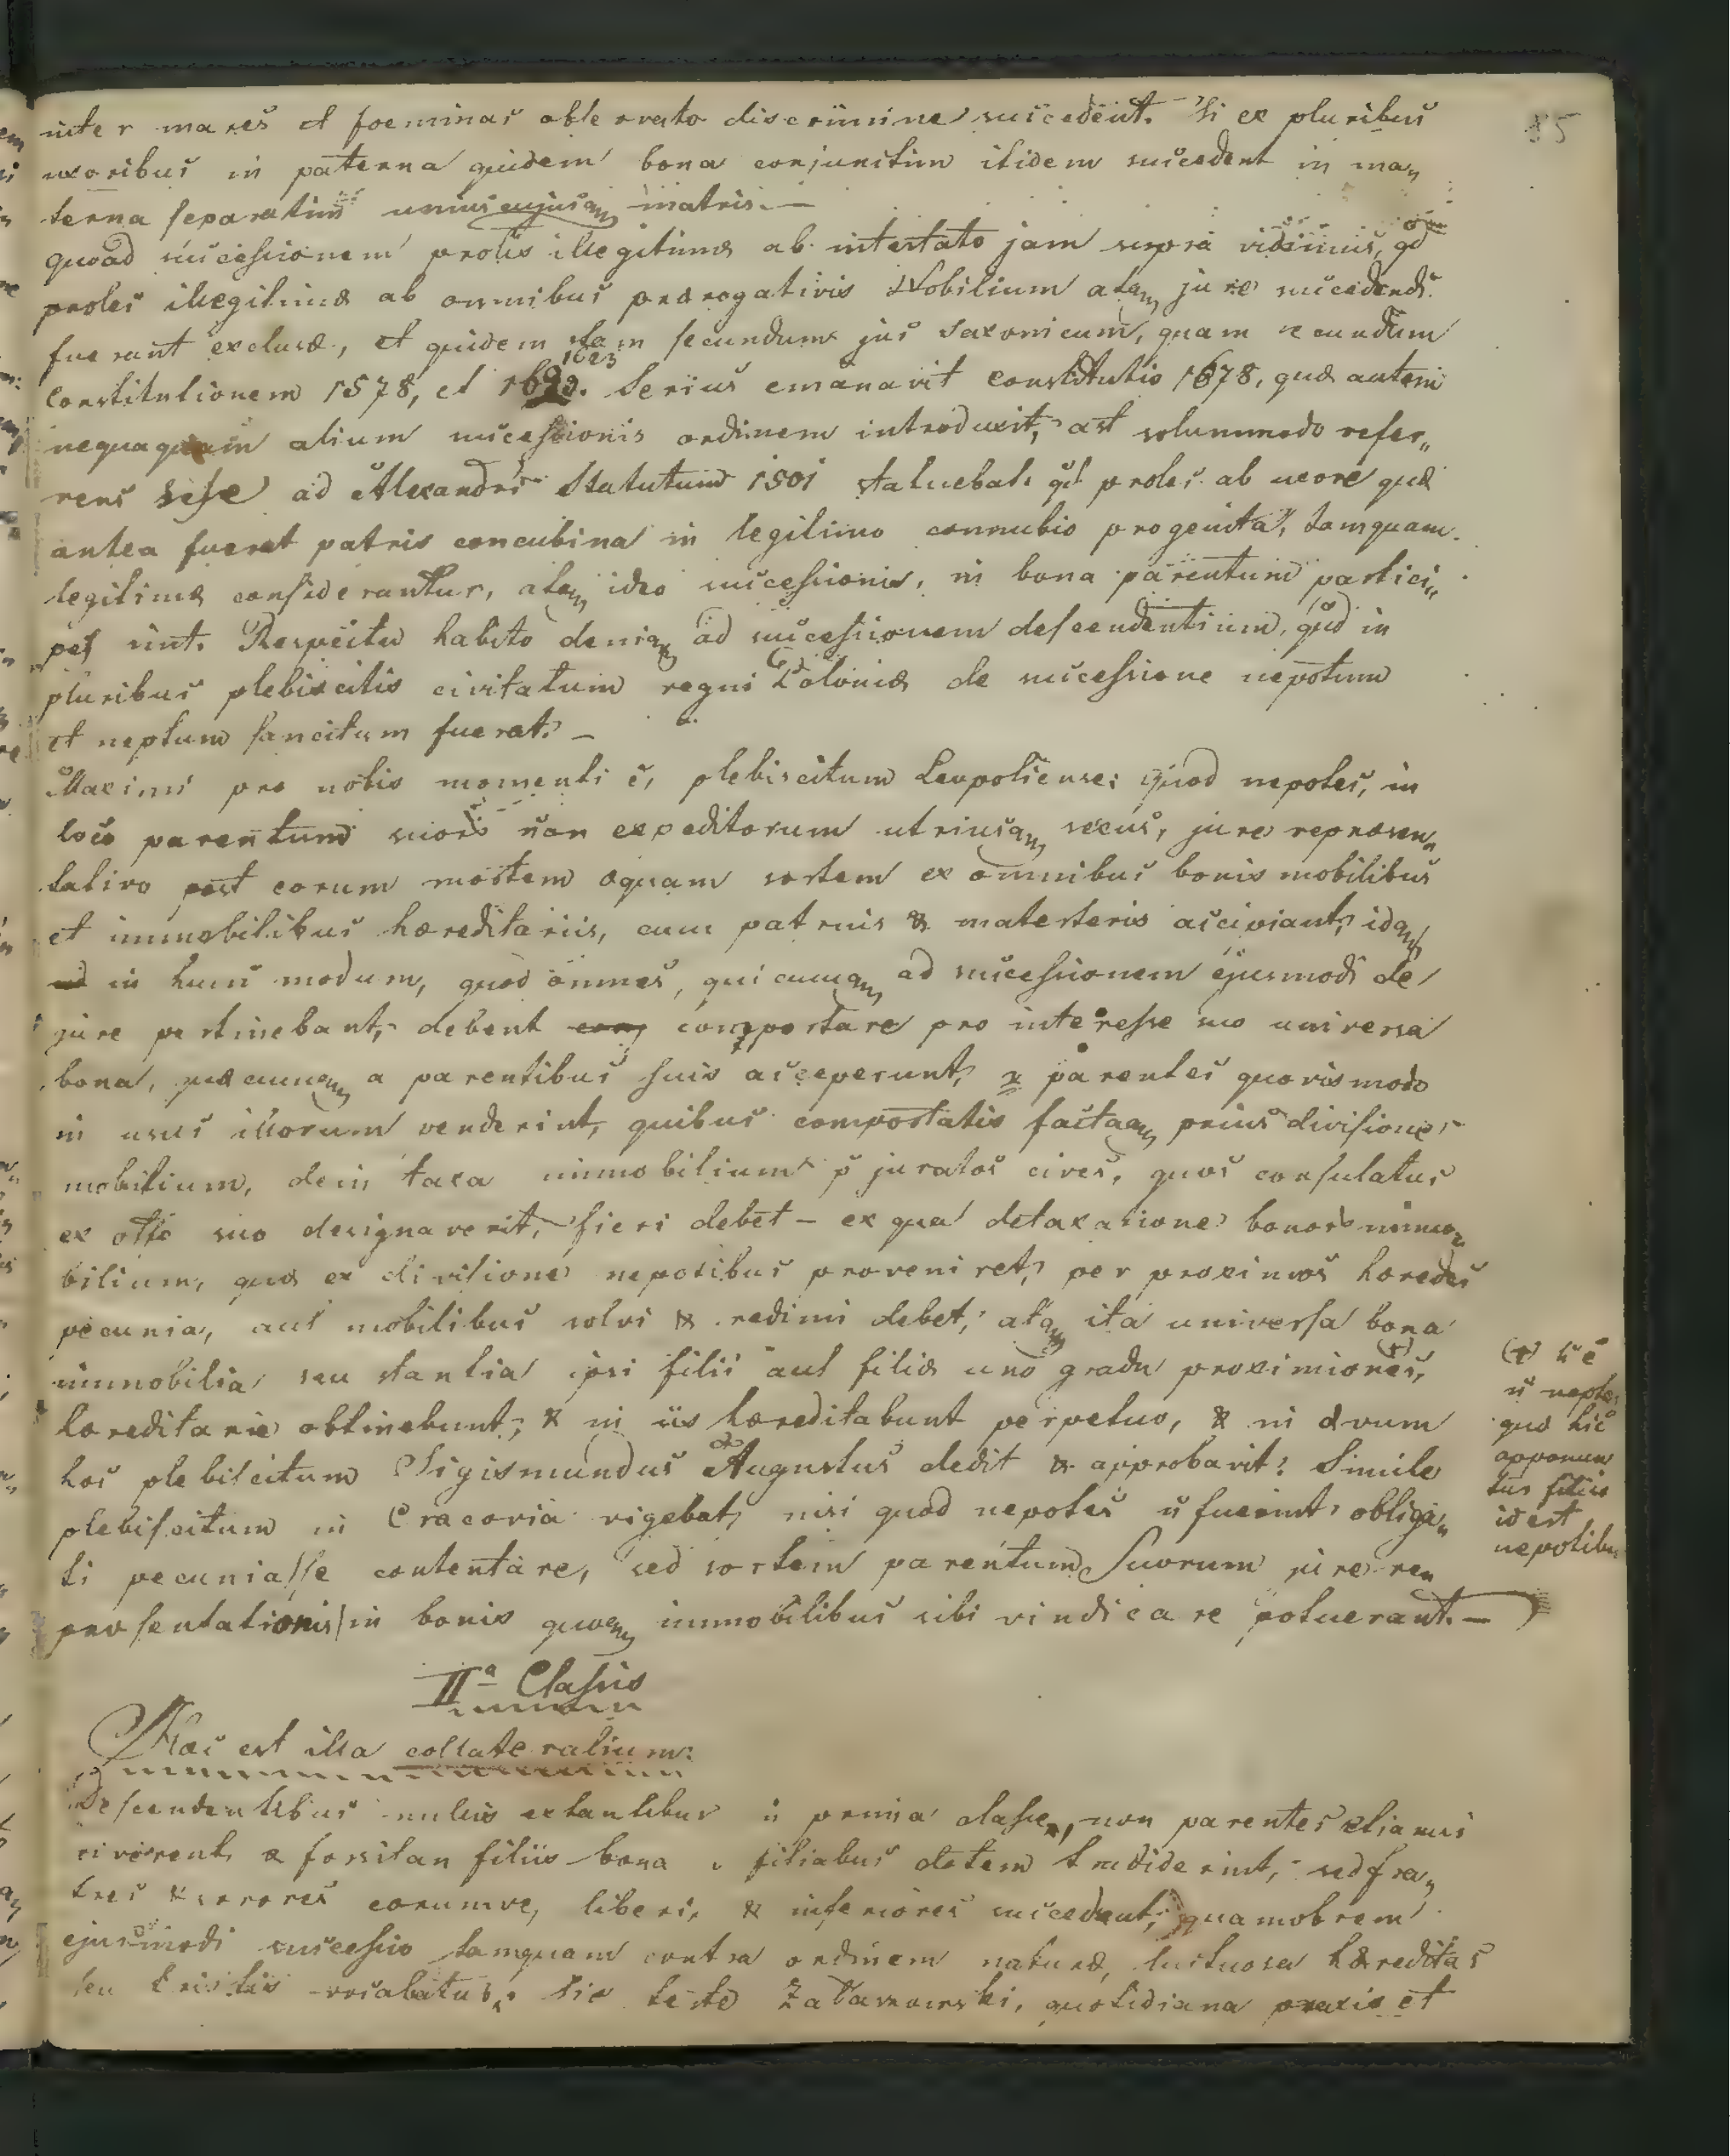 85
inter mares et foeminas observato discrimine succedent. Si ex pluribus
uxoribus in paterna quidem bona conjunctim itidem succedent in ma„
terna separatim uniuscujusq matris. —
quoad successionem prolis illegitimæ ab intestato jam supra vidimus, qd
proles illegitimæ ab omnibus prærogativis Nobilium atq jure succedendi
fuerant exclusæ, et quidem tam secundum jus Saxonicum, quam secundum
Constitutionem 1578, et 1623. Serius emanavit constitutio 1678, quæ autem
nequaquam alium successionis ordinem introduxit, ast solummodo refer„
rens sese ad Alexandri Statutum 1501 statuebat, qd proles ab uxore quæ
antea fuerat patris concubina in legitimo connubio progenita, tamquam
legitimæ considerantur, atq ideo successionis, in bona parentum partici„
pes sint. Respectu habito deniq ad successionem descendentium, qud in
pluribus plebiscitis civitatum regni Poloniæ de successione nepotum
et neptum sancitum fuerat. —
Maximi pro nobis momenti ē, plebiscitum Leopoliense: quod nepotes, in
loco parentum suorū non expeditorum utriusq sexus, jure repræsen„
tativo post eorum mortem æquam sortem ex omnibus bonis mobilibus
et immobilibus hæreditariis, cum patruis & materteris accipiant, idq
in hunc modum, quod omnes, quicumq ad successionem ejusmodi de
jure pertinebant, debent comportare pro interesse suo universa
bona, quæcunq a parentibus suis acceperunt, x parentes quovismodo
in usus illorum venderint, quibus comportatis factaq prius divisione
mobilium, dein taxa immobilium p juratos cives, quos consulatus
ex offo suo designaverit, fieri debet — ex qua detaxatione bonorū immo„
bilium, quæ ex divisione nepotibus proveniret, per proximos hæredes
pecunia, aut mobilibus solvi & redimi debet, atq ita universa bona
immobilia seu stantia ipsi filii aut filiæ uno gradu proximiores, (+)
hæreditarie obtinebunt, & in iis hæreditabunt perpetuo, & in ævum
hoc plebiscitum Sigismundus Augustus dedit & approbavit. Simile
plebiscitum in Cracovia vigebat, nisi quod nepotes ñ fuerint obliga„
ti pecunia sse contentare, sed sortem parentum suorum jure re„
præsentationis in bonis quoq immobilibus sibi vindicare potuerant. —
(+) h ē
ñ neptes
quæ hic
opponun
tur filiis
id est
nepotibus
IIª Classis
Hæc est illa collateralium:
Descendentibus nullis extantibus in prima classe, non parentes etiamsi
viverent & forsitan filiis bona, filiabus dotem tradiderint, sed fra„
tres & sorores eorumve, liberi, & inferiores succedent, quamobrem
ejusmodi successio tamquam contra ordinem naturæ, luctuosa hæreditas
seu tristis vocabatur. Sic teste Zalaszowski, quotidiana praxis et